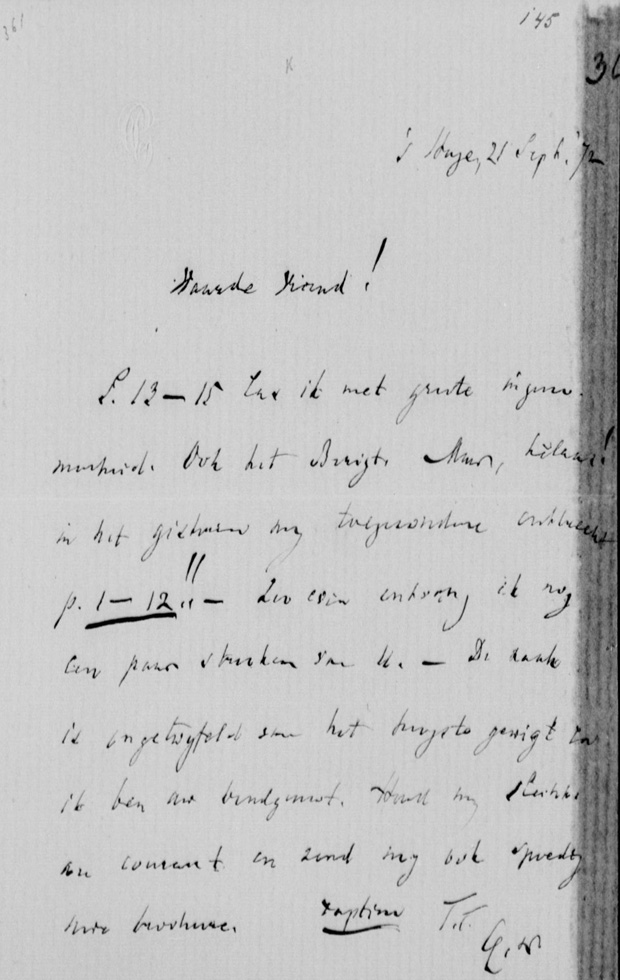 361
145
36
's Hage, 21 Sept. '72
Waarde Vriend!
P. 13 — 15 las ik met groote ingeno-
menheid. Ook het Berigt. Maar, hélaas!
in het gisteren my toegezondene ontbreekt
p. 1 — 12!! — Zoo even ontvang ik nog
een paar stukken van U. — De zaak
is ongetwyfeld van het hoogste gewigt en
ik ben uw bondgenoot. Houd my
au courant en zend my ook spoedig
uwe brochure. raptim T.T.